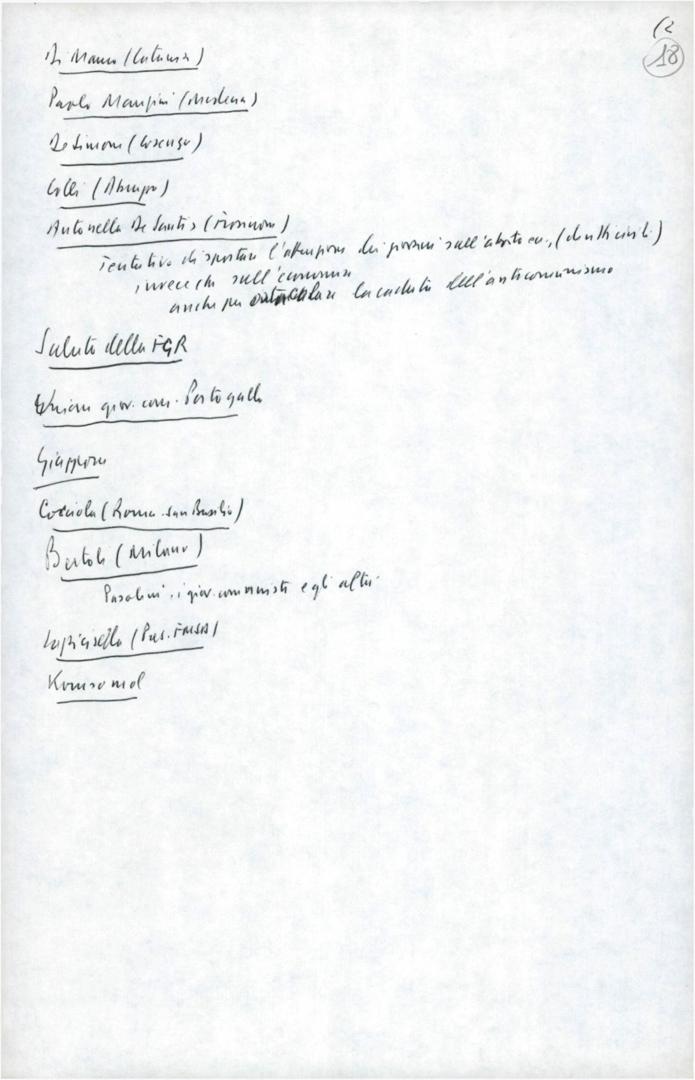 (2
18
Di Mauro (Catania)
Paolo Mangini (Modena)
De Simone (Cosenza)
Colli (Abruzzo)
Antonella De Santis (Frosinone)
Tentativo di spostare l'attenzione dei giovani sull'aborto ecc. (diritti civili)
invece che sull'economia
anche per ostacolare la caduta dell'anticomunismo
Saluto della FGR
Unione giov. com. Portogallo
Giappone
Cocciola (Roma - san Basilio)
Bertoli (Milano)
Pasolini, i giov. comunisti e gli altri
(Pres.
Komsomol